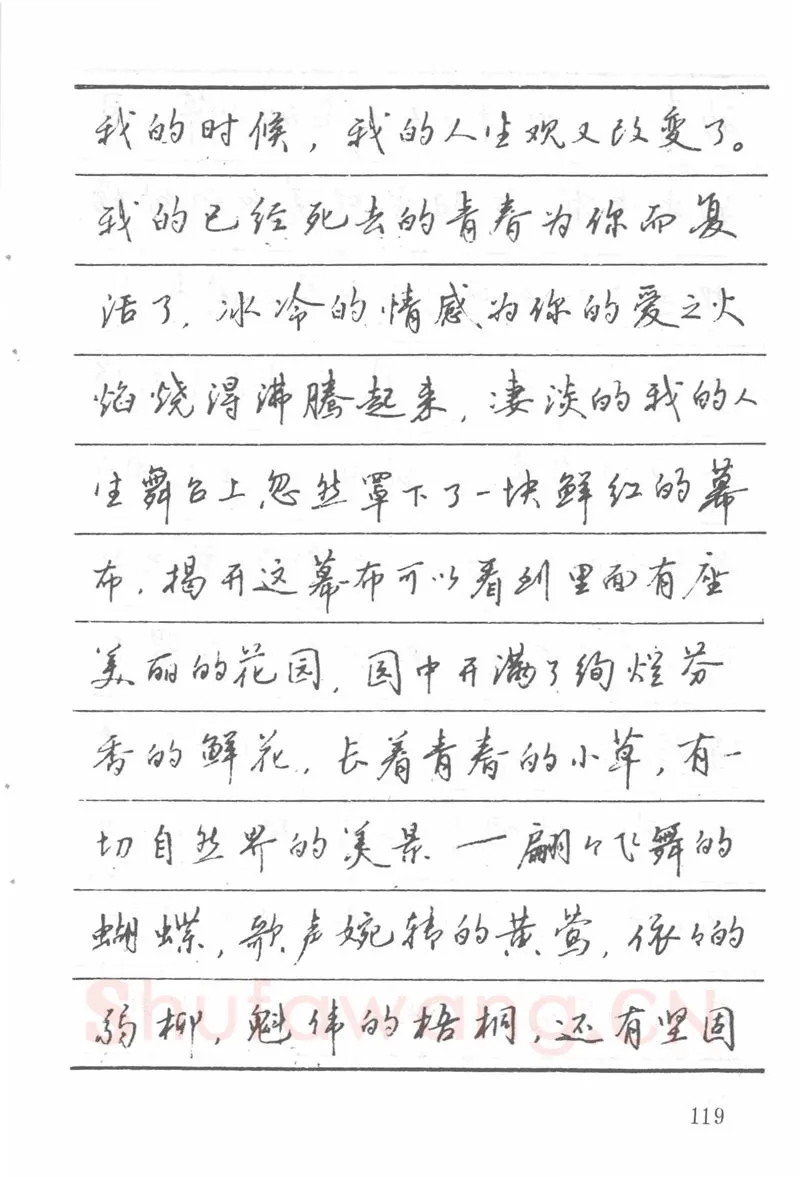 我的时候，我的人生观又改变了。
我的已经死去的青春为你而复
活了，冰冷的情感、为你的爱之火
焰烧得沸腾起来，凄淡的我的人
生舞台上，忽然罩下了一块鲜红的幕
布，揭开这幕布可以看到里面有座
美丽的花园，园中开满了绚烂芬
香的鲜花，长着青春的小草，有一
切自然界的美景—翩々飞舞的
蝴蝶，歌声婉转的黄莺，依々的
弱柳，魁伟的梧桐，还有坚固
Shufawang.CN
119